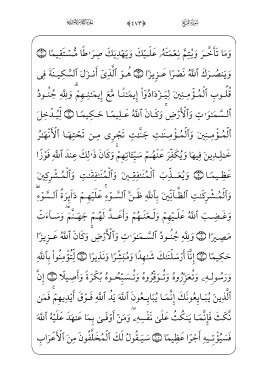 (٤٧٣)
وَمَا تَأَخَّرَ وَيُتِمَّ نِعْمَتَهُۥ عَلَيْكَ وَيَهْدِيَكَ صِرَٰطًا مُّسْتَقِيمًا
وَيَنصُرَكَ ٱللَّهُ نَصْرًا عَزِيزًا هُوَ ٱلَّذِىٓ أَنزَلَ ٱلسَّكِينَةَ فِى
قُلُوبِ ٱلْمُؤْمِنِينَ لِيَزْدَادُوٓا۟ إِيمَٰنًا مَّعَ إِيمَٰنِهِمْ ۗ وَلِلَّهِ جُنُودُ
ٱلسَّمَٰوَٰتِ وَٱلْأَرْضِ ۚ وَكَانَ ٱللَّهُ عَلِيمًا حَكِيمًا لِّيُدْخِلَ
ٱلْمُؤْمِنِينَ وَٱلْمُؤْمِنَٰتِ جَنَّٰتٍ تَجْرِى مِن تَحْتِهَا ٱلْأَنْهَٰرُ
خَٰلِدِينَ فِيهَا وَيُكَفِّرَ عَنْهُمْ سَيِّـَٔاتِهِمْ ۚ وَكَانَ ذَٰلِكَ عِندَ ٱللَّهِ فَوْزًا
عَظِيمًا وَيُعَذِّبَ ٱلْمُنَٰفِقِينَ وَٱلْمُنَٰفِقَٰتِ وَٱلْمُشْرِكِينَ
وَٱلْمُشْرِكَٰتِ ٱلظَّآنِّينَ بِٱللَّهِ ظَنَّ ٱلسَّوْءِ ۚ عَلَيْهِمْ دَآئِرَةُ ٱلسَّوْءِ ۖ
وَغَضِبَ ٱللَّهُ عَلَيْهِمْ وَلَعَنَهُمْ وَأَعَدَّ لَهُمْ جَهَنَّمَ ۖ وَسَآءَتْ
مَصِيرًا وَلِلَّهِ جُنُودُ ٱلسَّمَٰوَٰتِ وَٱلْأَرْضِ ۚ وَكَانَ ٱللَّهُ عَزِيزًا
حَكِيمًا إِنَّآ أَرْسَلْنَٰكَ شَٰهِدًا وَمُبَشِّرًا وَنَذِيرًا لِّتُؤْمِنُوا۟ بِٱللَّهِ
وَرَسُولِهِۦ وَتُعَزِّرُوهُ وَتُوَقِّرُوهُ وَتُسَبِّحُوهُ بُكْرَةً وَأَصِيلًا إِنَّ
ٱلَّذِينَ يُبَايِعُونَكَ إِنَّمَا يُبَايِعُونَ ٱللَّهَ يَدُ ٱللَّهِ فَوْقَ أَيْدِيهِمْ ۚ فَمَن
نَّكَثَ فَإِنَّمَا يَنكُثُ عَلَىٰ نَفْسِهِۦ ۖ وَمَنْ أَوْفَىٰ بِمَا عَٰهَدَ عَلَيْهُ ٱللَّهَ
فَسَيُؤْتِيهِ أَجْرًا عَظِيمًا سَيَقُولُ لَكَ ٱلْمُخَلَّفُونَ مِنَ ٱلْأَعْرَابِ